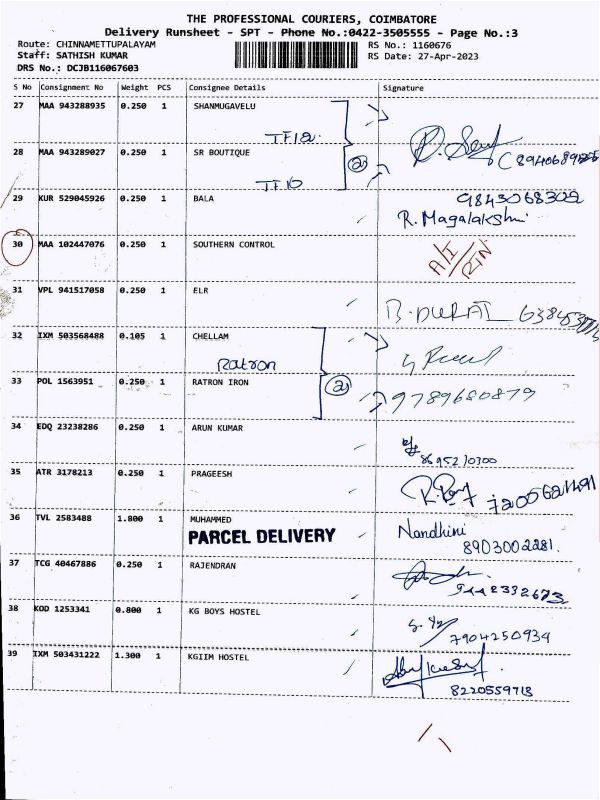 THE PROFESSIONAL COURIERS, COIMBATORE
Delivery Runsheet - SPT - Phone No.:0422-3505555 - Page No.:3
Route: CHINNAMETTUPALAYAM RS No.: 1160676
Staff: SATHISH KUMAR RS Date: 27-Apr-2023
DRS No.: DCJB116067603
S No Consignment No Weight PCS Consignee Details Signature
27 MAA 943288935 0.250 1 SHANMUGAVELU
TF12
28 MAA 943289027 0.250 1 SR BOUTIQUE
2
TF10
29 KUR 529045926 0.250 1 BALA 9843068302
R. Magalakshmi
30 MAA 102447076 0.250 1 SOUTHERN CONTROL
A/I RTN
31 VPL 941517058 0.250 1 ELR
B. DURAI
32 IXM 503568488 0.105 1 CHELLAM
Ratron
33 POL 1563951 0.250 1 RATRON IRON 2 9789680879
34 EDQ 23238286 0.250 1 ARUN KUMAR
8695210300
35 ATR 3178213 0.250 1 PRAGEESH
72005621491
36 TVL 2583488 1.800 1 MUHAMMED Nandhini
PARCEL DELIVERY 8903002281.
37 TCG 40467886 0.250 1 RAJENDRAN
9442332673
38 KOD 1253341 0.800 1 KG BOYS HOSTEL
7904250934
39 IXM 503431222 1.300 1 KGIIM HOSTEL
8220559713